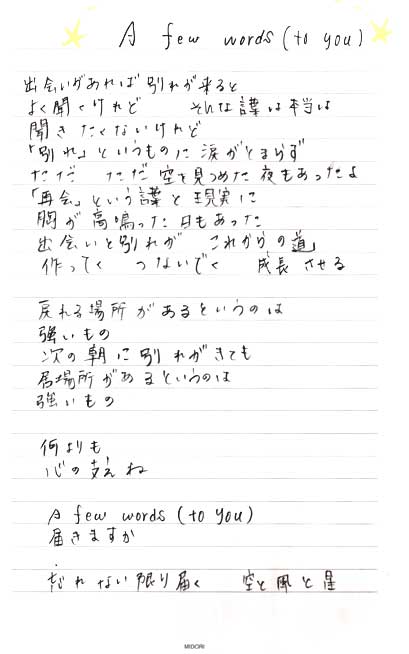 A few words (to you)
出会いがあれば 別れが来ると
よく聞くけれど そんな諜は本当は
聞きたくないけれど
「別れ」というものに 涙がとまらず
ただ ただ 空を見つめた 夜もあったよ
「再会」という諜と現実に
胸が高鳴った 日もあった
出会いと別れが これからの道
作ってく つないでく 成長させる
戻れる場所があるというのは
強いもの
次の朝に別れがきても
居場所があるというのは
強いもの
何よりも
心の支えね
A few words (to you)
届きますか
忘れない限り届く 空と風と星
MIDORI